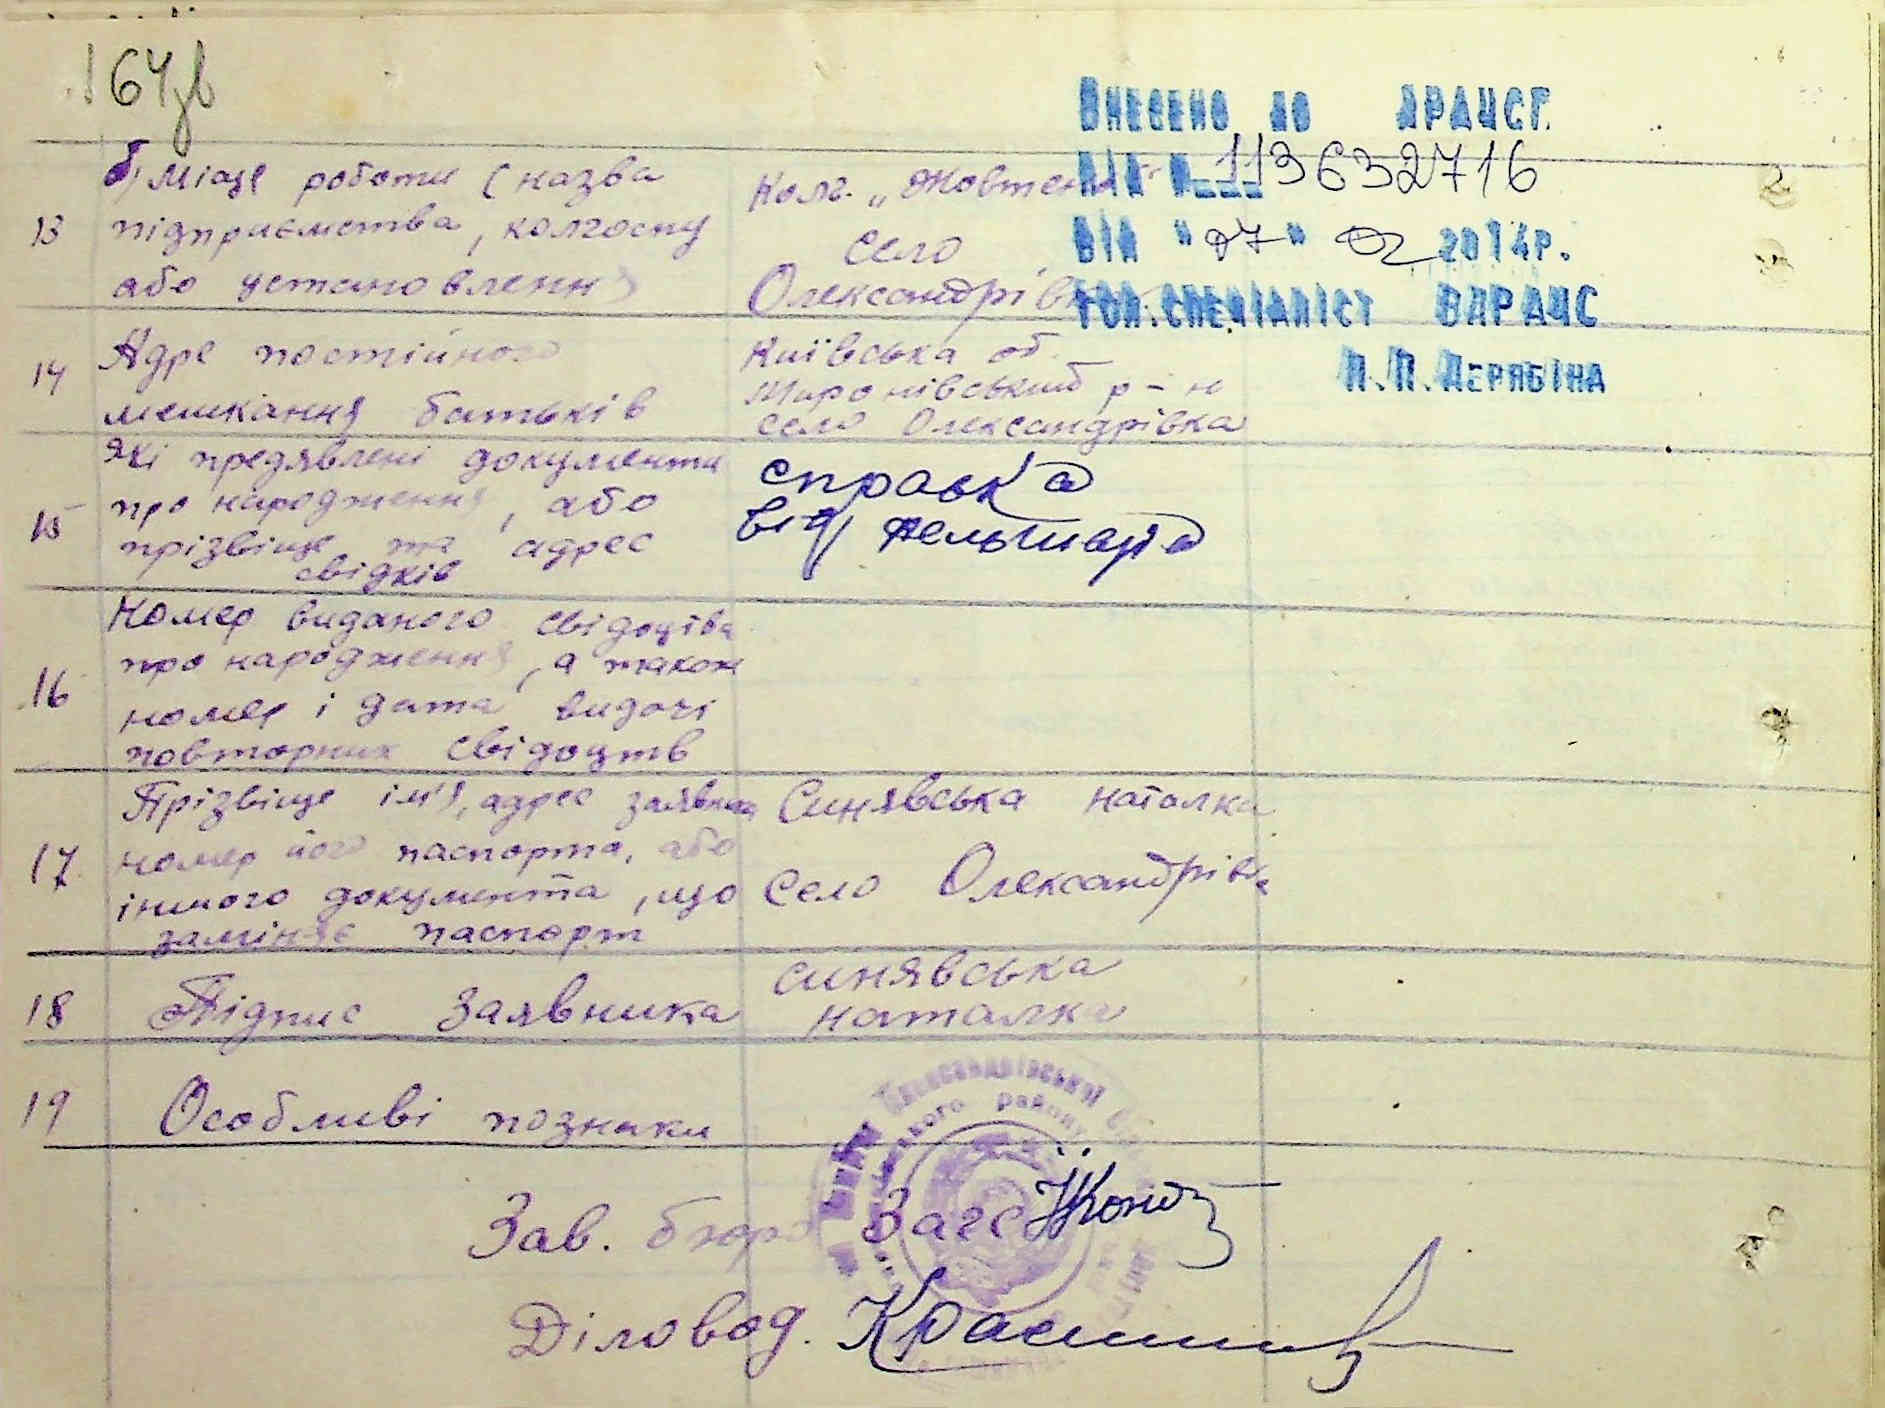 164зв
ВНЕСЕНО ДО ДРАЦСГ.
ВІД № 113632716
ВІД "07" 02 2014р.
ГОЛ.СПЕЦІАЛІСТ ВДРАЦС
Л.П.ДЕРЯБІНА
13
б) місце роботи (назва
підприємства, колгоспу
або установлення
Колг. „Жовтень"
село
Олександрівка
14
Адре постійного
мешкання батьків
Київська об.
Миронівський р-н
село Олександрівка
15
які предявлені документи
про народження, або
прізвище та адрес
свідків
справка
від фельшара
16
Номер виданого свідоцтва
про народження, а також
номер і дата видачі
повторних свідоцтв
17
Прізвіще ім'я, адрес заявника
номер його паспорта, або
іншого документа, що
заміняє паспорт
Синявська Наталка
Село Олександрівка
18
Підпис Заявника
Синявська
Наталка
19
Особливі познаки
Олександрівської
району
Зав. бюро Загс
Діловод.